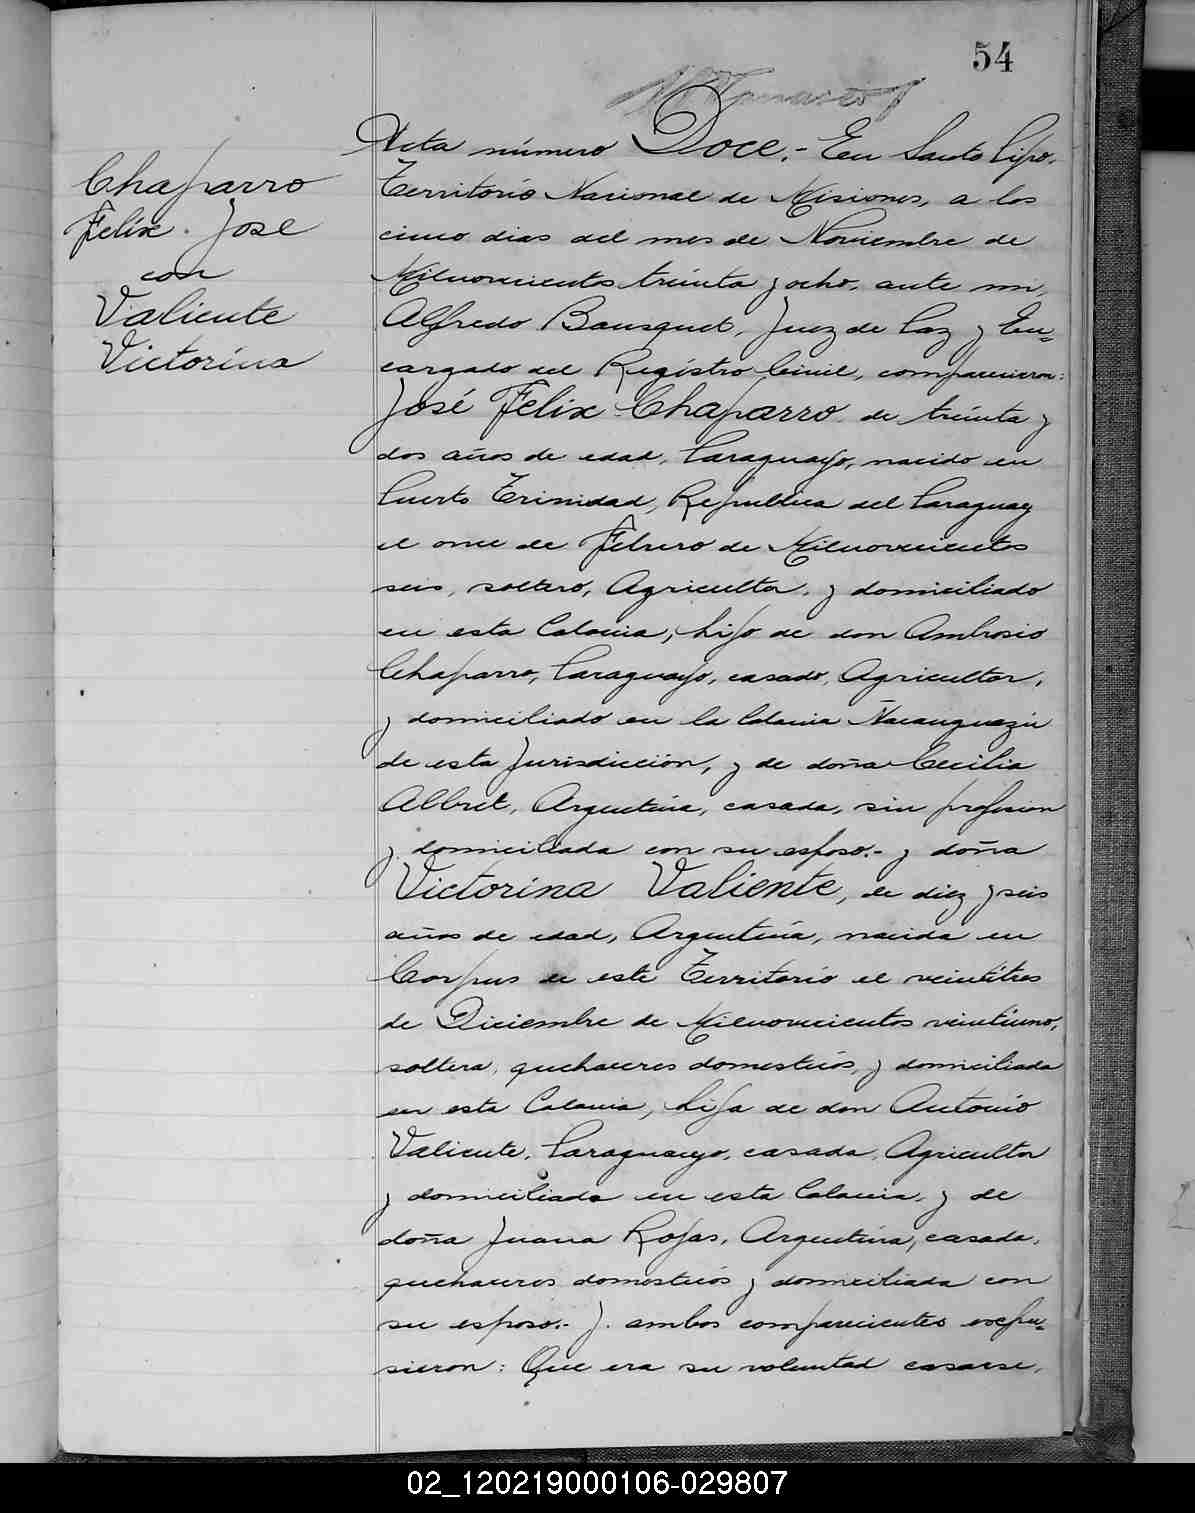 54
Chaparro
Felix. Jose
con
Valiente
Victorina
Acta número Doce.- En Santo Pipó,
Territorio Nacional de Misiones, a los
cinco dias del mes de Noviembre de
Milnovecientos treinta y ocho, ante mi,
Alfredo Bousquet, Juez de Paz y En=
cargado del Registro Civil, comparecieron:
José Felix Chaparro de treinta y
dos años de edad, Paraguayo, nacido en
Puerto Trinidad, Republica del Paraguay
el once de Febrero de Milnovecientos
seis, soltero, Agricultor, y domiciliado
en esta Colonia, hijo de don Ambrosio
Chaparro, Paraguayo, casado, Agricultor,
y domiciliado en la Colonia Ñacanguazú
de esta Jurisdicción, y de doña Cecilia
Albret, Argentina, casada, sin profesion
y domiciliada con su esposo.- y doña
Victorina Valiente, de diez y seis
años de edad, Argentina, nacida en
Corpus de este Territorio el veintitres
de Diciembre de Milnovecientos veintiuno,
soltera, quehaceres domesticos, y domiciliada
en esta Colonia, hija de don Antonio
Valiente, Paraguayo, casado, Agricultor
y domiciliado en esta Colonia, y de
doña Juana Rojas, Argentina, casada,
quehaceres domesticos y domiciliada con
su esposo.- y. ambos comparecientes expu=
sieron: Que era su voluntad casarse,
02_120219000106-029807